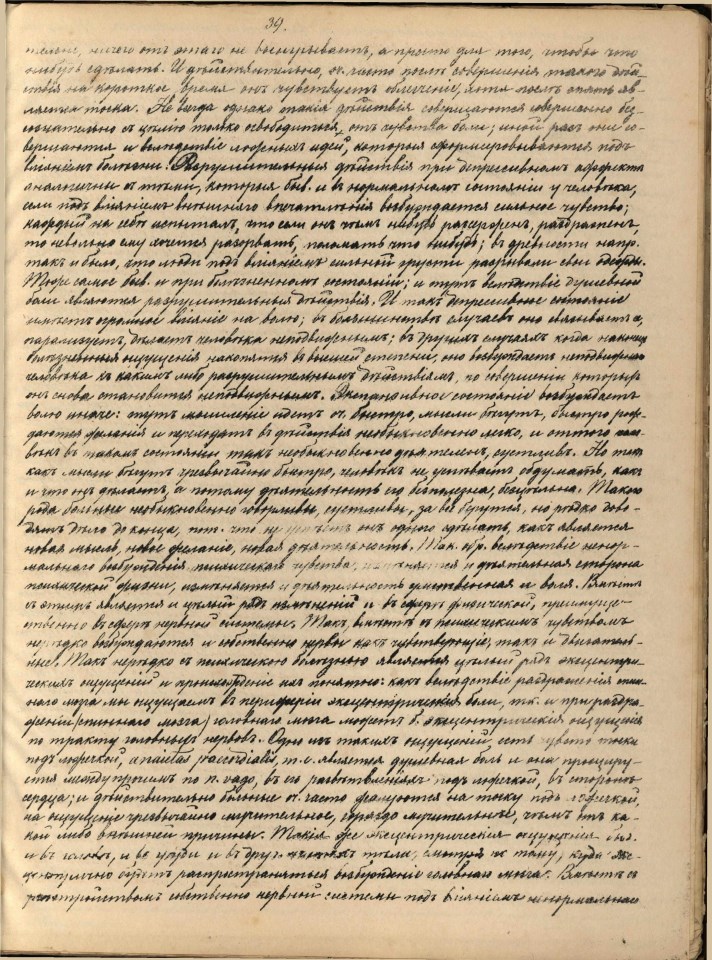 39.
ничего отъ этаго не выигрываетъ, а просто для того, чтобы что
нибудь сдѣлать. И дѣйствительно, оч. часто послѣ совершенія такого дѣй-
ствія на короткое время онъ чувствуетъ облегченіе, хотя послѣ опять яв-
ляется тоска. Не всегда однако такія дѣйствія совершаются совершенно без-
сознательно съ цѣлью только освободиться отъ чувства боли; иной разъ они со-
вершаются и вслѣдствіе ложныхъ идей, которыя сформировываются подъ
вліяніемъ болѣзни. Разрушительныя дѣйствія при депрессивномъ аффектѣ
аналогичны съ тѣми, которыя быв. и въ нормальномъ состояніи у человѣка,
если подъ вліяніемъ внѣшняго впечатлѣнія возбуждается сильное чувство;
каждый на себѣ испыталъ, что если онъ чѣмъ нибудь разсерженъ, раздраженъ,
то невольно ему хочется разорвать, поломать что нибудь; въ древности напр.
такъ и было, что люди подъ вліяніемъ сильной грусти разрывали свои одежды.
Тоже самое быв. и при болѣзненномъ состояніи; и тутъ вслѣдствіе душевной
боли являются разрушительныя дѣйствія. И такъ депрессивное состояніе
имѣетъ огромное вліяніе на волю; въ большинствѣ случаевъ оно связываетъ,
парализуетъ, дѣлаетъ человѣка неподвижнымъ; въ другихъ случаяхъ когда наконецъ
болѣзненныя ощущенія накопятся въ высшей степени, оно возбуждаетъ неподвижнаго
человѣка къ какимъ либо разрушительнымъ дѣйствіямъ, по совершеніи которыхъ
онъ снова становится неподвижнымъ. Экспансивное состояніе возбуждаетъ
волю иначе: тутъ мышленіе идетъ оч. быстро, мысли бѣгутъ, быстро рож-
даются желанія и переходятъ въ дѣйствія необыкновенно легко, и оттого чело-
вѣкъ въ такомъ состояніи такъ необыкновенно дѣятеленъ, суетливъ. Но такъ
какъ мысли бѣгутъ чрезвычайно быстро, человѣкъ не успѣваетъ обдумать, какъ
и что онъ дѣлаетъ, а потому дѣятельность его безполезна, безцѣльна. Такого
рода больные необыкновенно говорливы, суетливы, за все берутся, но рѣдко дово-
дятъ дѣло до конца, пот. что не успѣетъ онъ одного сдѣлать, какъ является
новая мысль, новое желаніе, новая дѣятельность. Так. обр. вслѣдствіе ненор-
мальнаго возбужденія психическаго чувства, измѣняется и дѣятельная сторона
психической жизни, измѣняется и дѣятельность умственная и воля. Вмѣстѣ
съ этимъ является и цѣлый рядъ измѣненій и въ сферѣ физической, преимуще-
ственно въ сферѣ нервной системы. Такъ, вмѣстѣ съ психическимъ чувствомъ
нерѣдко возбуждаются и собственно нервы какъ чувствующіе, такъ и двигатель-
ные. Такъ нерѣдко съ психическою болѣзнью является цѣлый рядъ эксцентри-
ческихъ ощущеній и происхожденіе ихъ понятно: какъ вслѣдствіе раздраженія спин-
наго мозга мы ощущаемъ въ периферіи эксцентрическія боли, так. и при раздра-
женіи (спиннаго мозга) головнаго мозга можетъ б. эксцентрическія ощущенія
по тракту головныхъ нервовъ. Одно изъ такихъ ощущеній есть чувство тоски
подъ ложечкой, anxietas praecordialis, т. е. является душевная боль и она проэциру-
ется между прочимъ по n. vago, въ его развѣтвленіяхъ подъ ложечкой, въ сторонѣ
сердца; и дѣйствительно больные оч. часто жалуются на тоску подъ ложечкой,
на ощущеніе чрезвычайно мучительное, гораздо мучительнѣе, чѣмъ отъ ка-
кой либо внѣшней причины. Такія же эксцентрическія ощущенія быв.
и въ головѣ, и въ груди и въ друг. частяхъ тѣла, смотря по тому, куда экс-
центрично будетъ распространяться возбужденіе головнаго мозга. Вмѣстѣ съ
разстройствомъ собственно нервной системы подъ вліяніемъ ненормальнаго